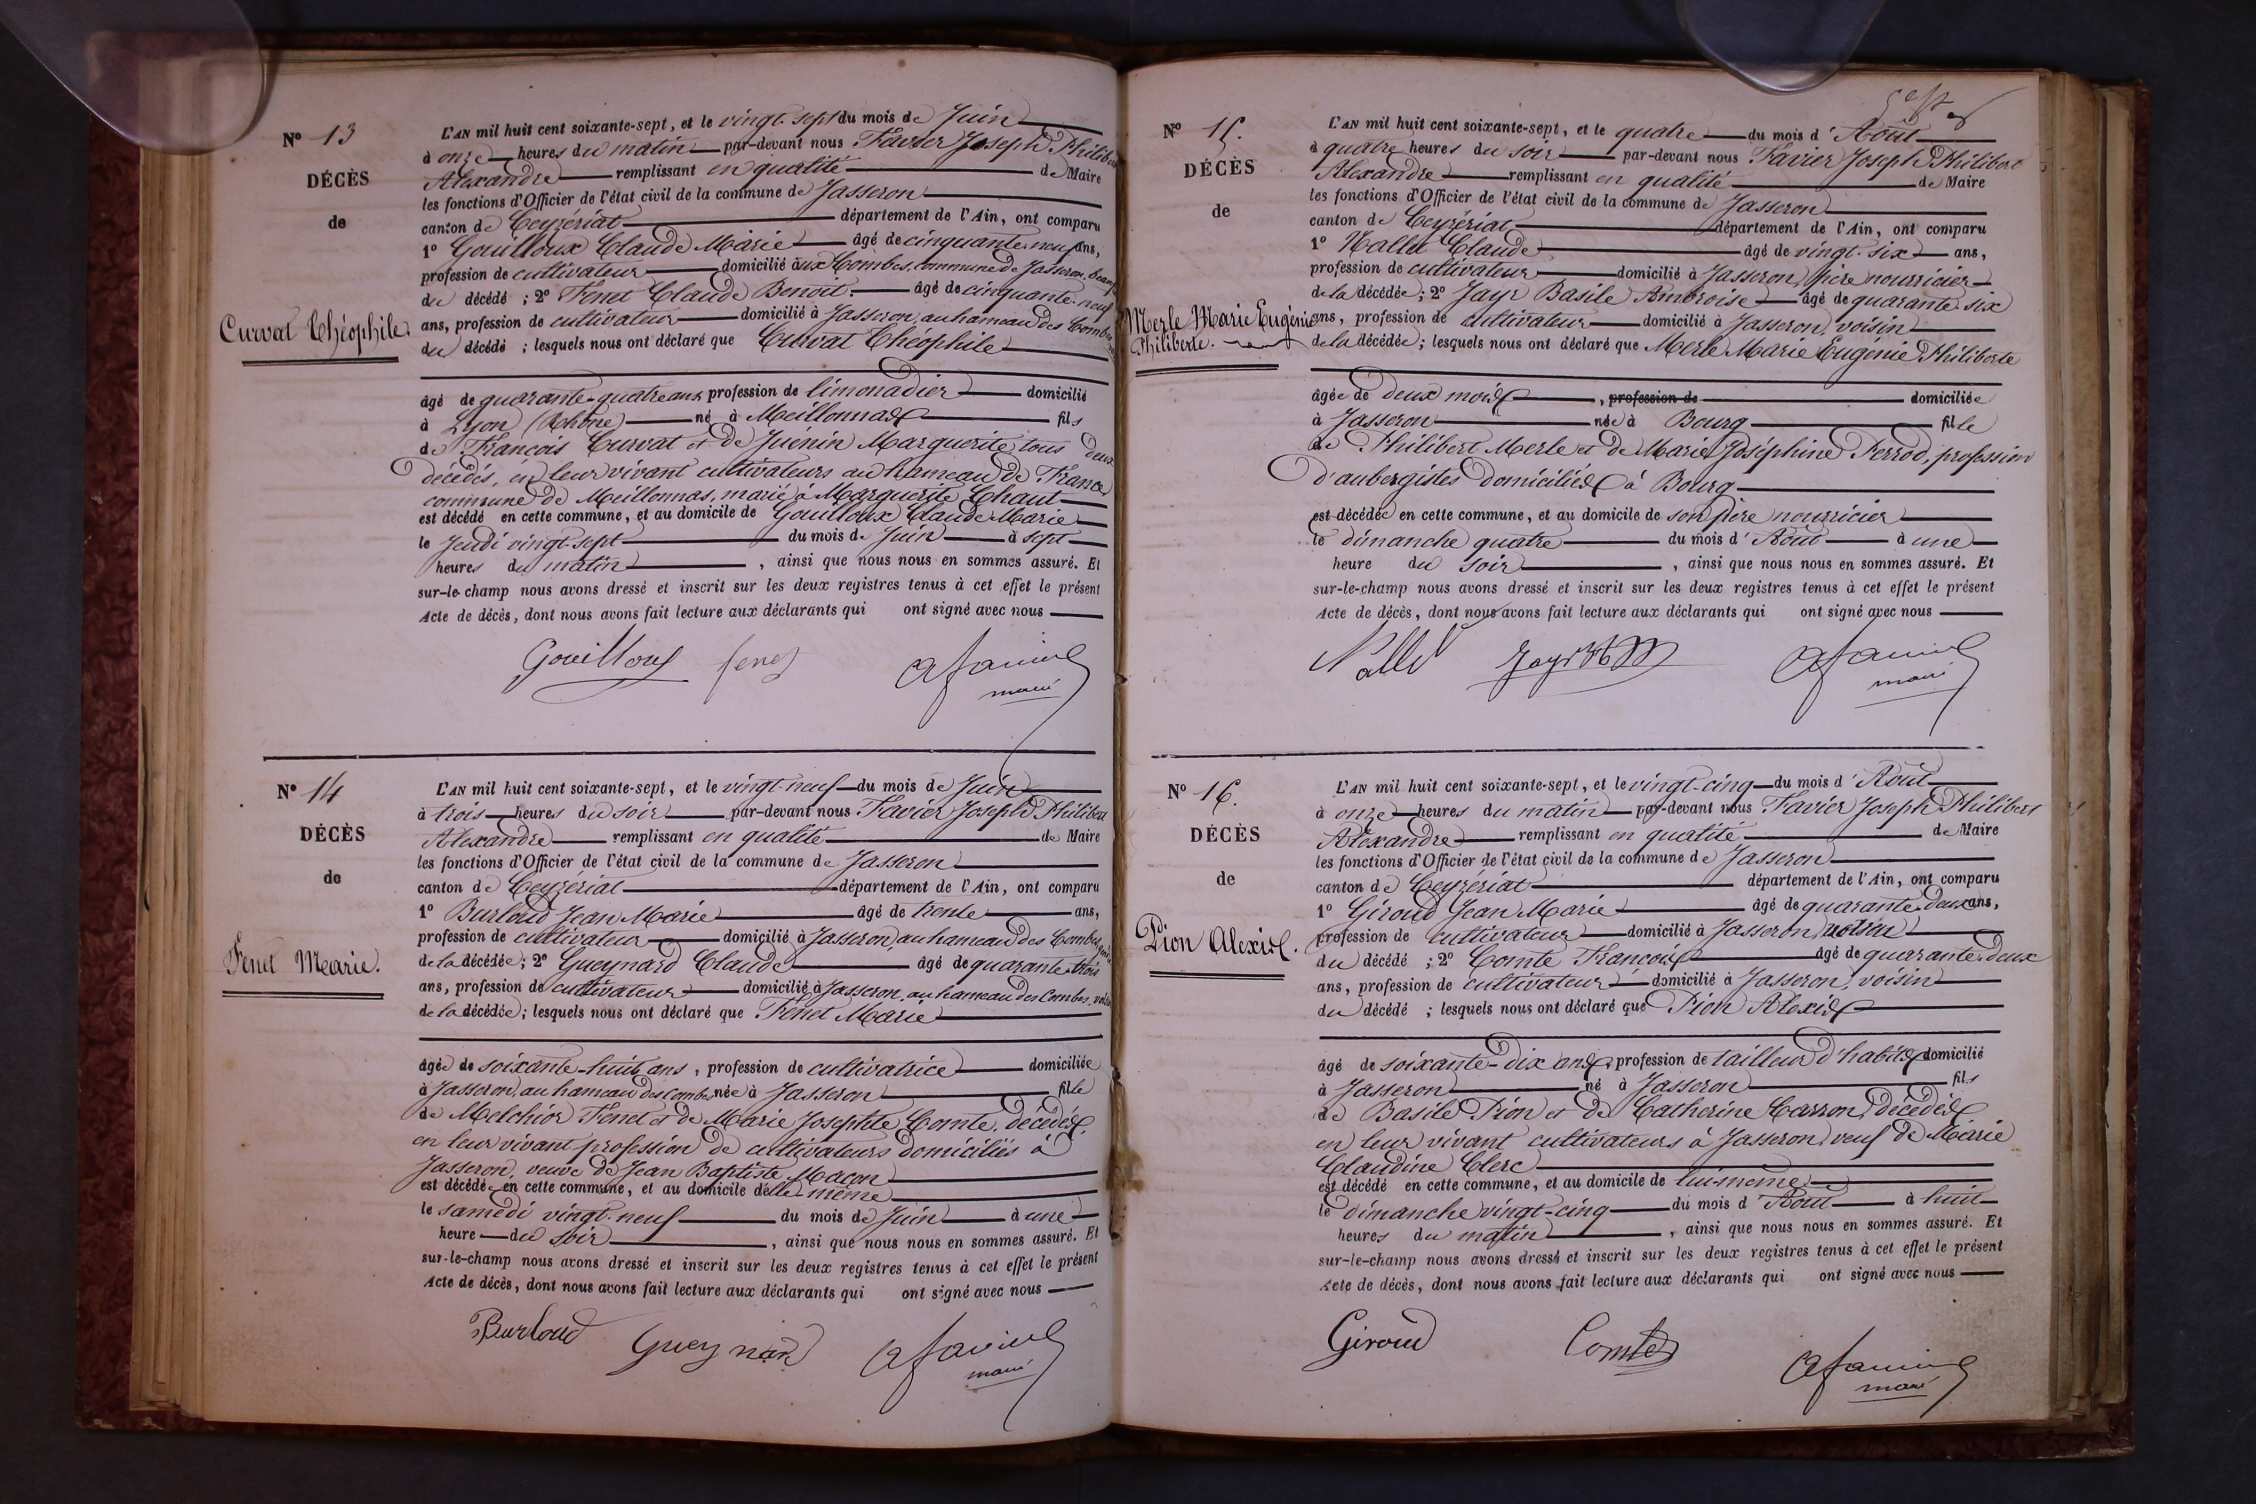 N° 13
DÉCÈS
de
Curvat Théophile.
L'AN mil huit cent soixante-sept, et le vingt-sept du mois de Juin
à onze heures du matin par-devant nous Favier Joseph Philibert
Alexandre remplissant en qualité de Maire
les fonctions d'Officier de l'état civil de la commune de Jasseron
canton de Ceyzériat département de l'Ain, ont comparu
1° Gouilloux Claude Marie âgé de cinquante-neuf ans,
profession de cultivateur domicilié aux Combes, commune de Jasseron,
du décédé ; 2° Fenet Claude Benoit. âgé de cinquante-neuf
ans, profession de cultivateur domicilié à Jasseron, au hameau des Combes
du décédé ; lesquels nous ont déclaré que Curvat Théophile
âgé de quarante-quatre ans profession de limonadier domicilié
à Lyon (Rhône) né à Meillonnas fils
de François Curvat et de Juénin Marguerite, tous deux
décédés, en leur vivant cultivateurs au hameau de France
commune de Meillonnas, marié à Marguerite Chaut
est décédé en cette commune, et au domicile de Gouilloux Claude Marie
le Jeudi vingt-sept du mois de Juin à sept
heures du matin , ainsi que nous nous en sommes assuré. Et
sur-le-champ nous avons dressé et inscrit sur les deux registres tenus à cet effet le présent
Acte de décès, dont nous avons fait lecture aux déclarants qui ont signé avec nous
Gouilloux fenet afavier
maire
N° 14
DÉCÈS
de
Fenet Marie.
L'AN mil huit cent soixante-sept, et le vingt-neuf du mois de Juin
à trois heures du soir par-devant nous Favier Joseph Philibert
Alexandre remplissant en qualité de Maire
les fonctions d'Officier de l'état civil de la commune de Jasseron
canton de Ceyzériat département de l'Ain, ont comparu
1° Burloud Jean Marie âgé de trente ans,
profession de cultivateur domicilié à Jasseron, au hameau des Combes,
de la décédée ; 2° Gueynard Claude âgé de quarante-trois
ans, profession de cultivateur domicilié à Jasseron, au hameau des Combes, voisin
de la décédée ; lesquels nous ont déclaré que Fenet Marie
âgée de soixante-huit ans, profession de cultivatrice domiciliée
à Jasseron, au hameau des Combes née à Jasseron fille
de Melchior Fenet et de Marie Josephte Comte, décédés,
en leur vivant profession de cultivateurs domiciliés à
Jasseron, veuve de Jean Baptiste Macon
est décédée en cette commune, et au domicile d'elle même
le samedi vingt-neuf du mois de Juin à une
heure du soir , ainsi que nous nous en sommes assuré. Et
sur-le-champ nous avons dressé et inscrit sur les deux registres tenus à cet effet le présent
Acte de décès, dont nous avons fait lecture aux déclarants qui ont signé avec nous
Burloud Gueynard afavier
maire
N° 15.
DÉCÈS
de
Merle Marie Eugénie
Philiberte.
L'AN mil huit cent soixante-sept, et le quatre du mois d'Août
à quatre heures du soir par-devant nous Favier Joseph Philibert
Alexandre remplissant en qualité de Maire
les fonctions d'Officier de l'état civil de la commune de Jasseron
canton de Ceyzériat département de l'Ain, ont comparu
1° Nallet Claude âgé de vingt-six ans,
profession de cultivateur domicilié à Jasseron, père nourricier
de la décédée ; 2° Jayr Basile Ambroise âgé de quarante-six
ans, profession de cultivateur domicilié à Jasseron, voisin
de la décédée ; lesquels nous ont déclaré que Merle Marie Eugénie Philiberte
âgée de deux mois , profession de domiciliée
à Jasseron née à Bourg fille
de Philibert Merle et de Marie Joséphine Perrod, profession
d'aubergistes domiciliés à Bourg
est décédée en cette commune, et au domicile de son père nourricier
le dimanche quatre du mois d'Août à une
heure du soir , ainsi que nous nous en sommes assuré. Et
sur-le-champ nous avons dressé et inscrit sur les deux registres tenus à cet effet le présent
Acte de décès, dont nous avons fait lecture aux déclarants qui ont signé avec nous
Nallet Jayr afavier
maire
N° 16.
DÉCÈS
de
Pion Alexis.
L'AN mil huit cent soixante-sept, et le vingt-cinq du mois d'Août
à onze heures du matin par-devant nous Favier Joseph Philibert
Alexandre remplissant en qualité de Maire
les fonctions d'Officier de l'état civil de la commune de Jasseron
canton de Ceyzériat département de l'Ain, ont comparu
1° Giroud Jean Marie âgé de quarante-deux ans,
profession de cultivateur domicilié à Jasseron, voisin
du décédé ; 2° Comte François âgé de quarante-deux
ans, profession de cultivateur domicilié à Jasseron, voisin
du décédé ; lesquels nous ont déclaré que Pion Alexis
âgé de soixante-dix ans, profession de tailleur d'habits domicilié
à Jasseron né à Jasseron fils
de Basile Pion et de Catherine Carron, décédés
en leur vivant cultivateurs à Jasseron, veuf de Marie
Claudine Clerc
est décédé en cette commune, et au domicile de lui-même
le dimanche vingt-cinq du mois d'Août à huit
heures du matin , ainsi que nous nous en sommes assuré. Et
sur-le-champ nous avons dressé et inscrit sur les deux registres tenus à cet effet le présent
Acte de décès, dont nous avons fait lecture aux déclarants qui ont signé avec nous
Giroud Comte afavier
maire